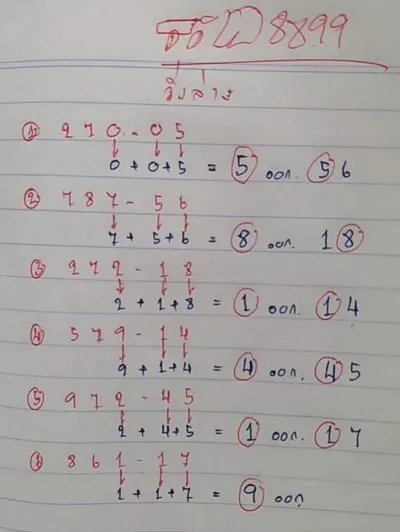 8899
วิ่งล่าง
① 270-05
0+0+5 = 5 ออก. 56
② 787-56
7+5+6 = 8 ออก. 18
③ 272-18
2+1+8 = 1 ออก. 14
④ 579-14
9+1+4 = 4 ออก. 45
⑤ 972-45
2+4+5 = 1 ออก. 17
861-17
1+1+7 = 9 ออก